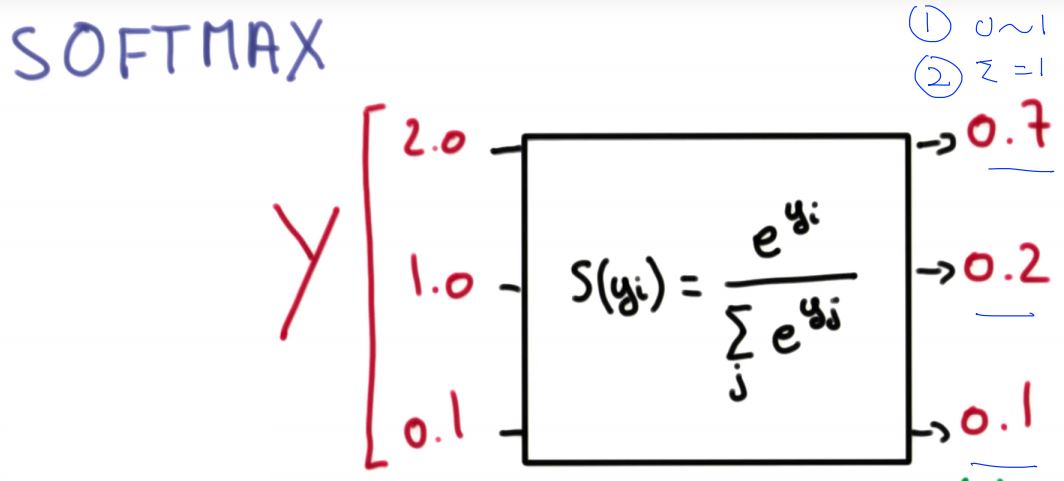 SOFTMAX
① 0~1
② Σ = 1
Y [ 2.0 → 0.7
1.0 S(yi) = e^yi / Σj e^yj → 0.2
0.1 → 0.1